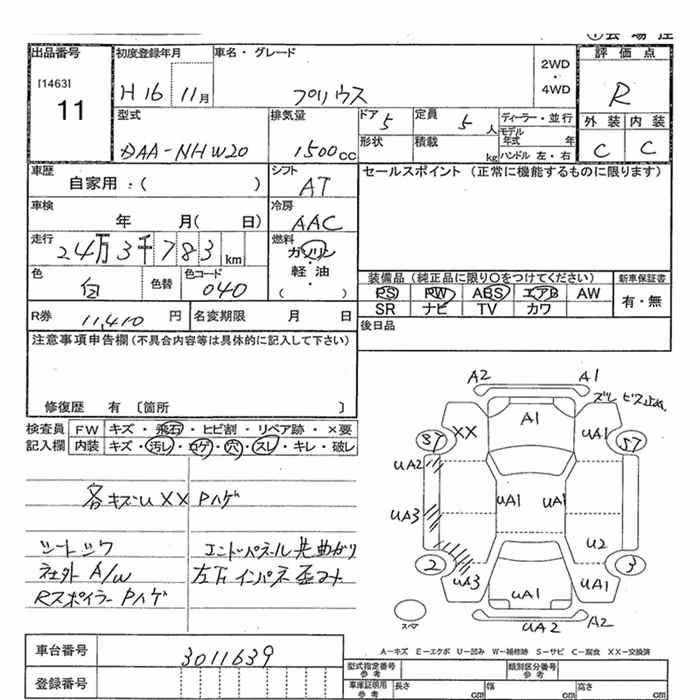 出品番号 初度登録年月 車名・グレード 2WD・4WD 評価点
[1463]
11 H16 11月 プリウス R
型式 排気量 ドア 定員 ディーラー・並行 外装 内装
DAA-NHW20 1500cc 5 5人 モデル年式 年 C C
形状 積載 kg ハンドル 左・右
車歴 シフト セールスポイント (正常に機能するものに限ります)
自家用:( ) AT
車検 冷房
年 月( 日) AAC
走行 燃料
24万3千783km ガソリン・軽油
( )
色 色替 色コード 装備品 (純正品に限り○をつけてください) 新車保証書
白 040 PS PW ABS エアB AW 有・無
SR ナビ TV カワ
R券 11,410円 名変期限 月 日 後日品
注意事項申告欄(不具合内容等は具体的に記入して下さい)
修復歴 有 〔箇所 〕
検査員記入欄 FW キズ・飛石・ヒビ割・リペア跡・×要
内装 キズ・汚レ・コゲ・穴・スレ・キレ・破レ
各キズU XX Pハゲ
シートシワ エンドーパネル 先曲がり
社外 A/W 左下インパネ歪み
Rスポイラー Pハゲ
A2 A1
ズレ ビス止め
XX A1 UA1
37 57
UA2
UA1 UA1
UA3 U2
2 3
UA3 UA1 UA1
スペア UA2 A2
A-キズ E-エクボ U-凹み W-補修跡 S-サビ C-腐食 XX-交換済
車台番号 3011639
型式指定番号 参考 類別区分番号 参考
登録番号 車庫証明用 参考 長さ cm 幅 cm 高さ cm